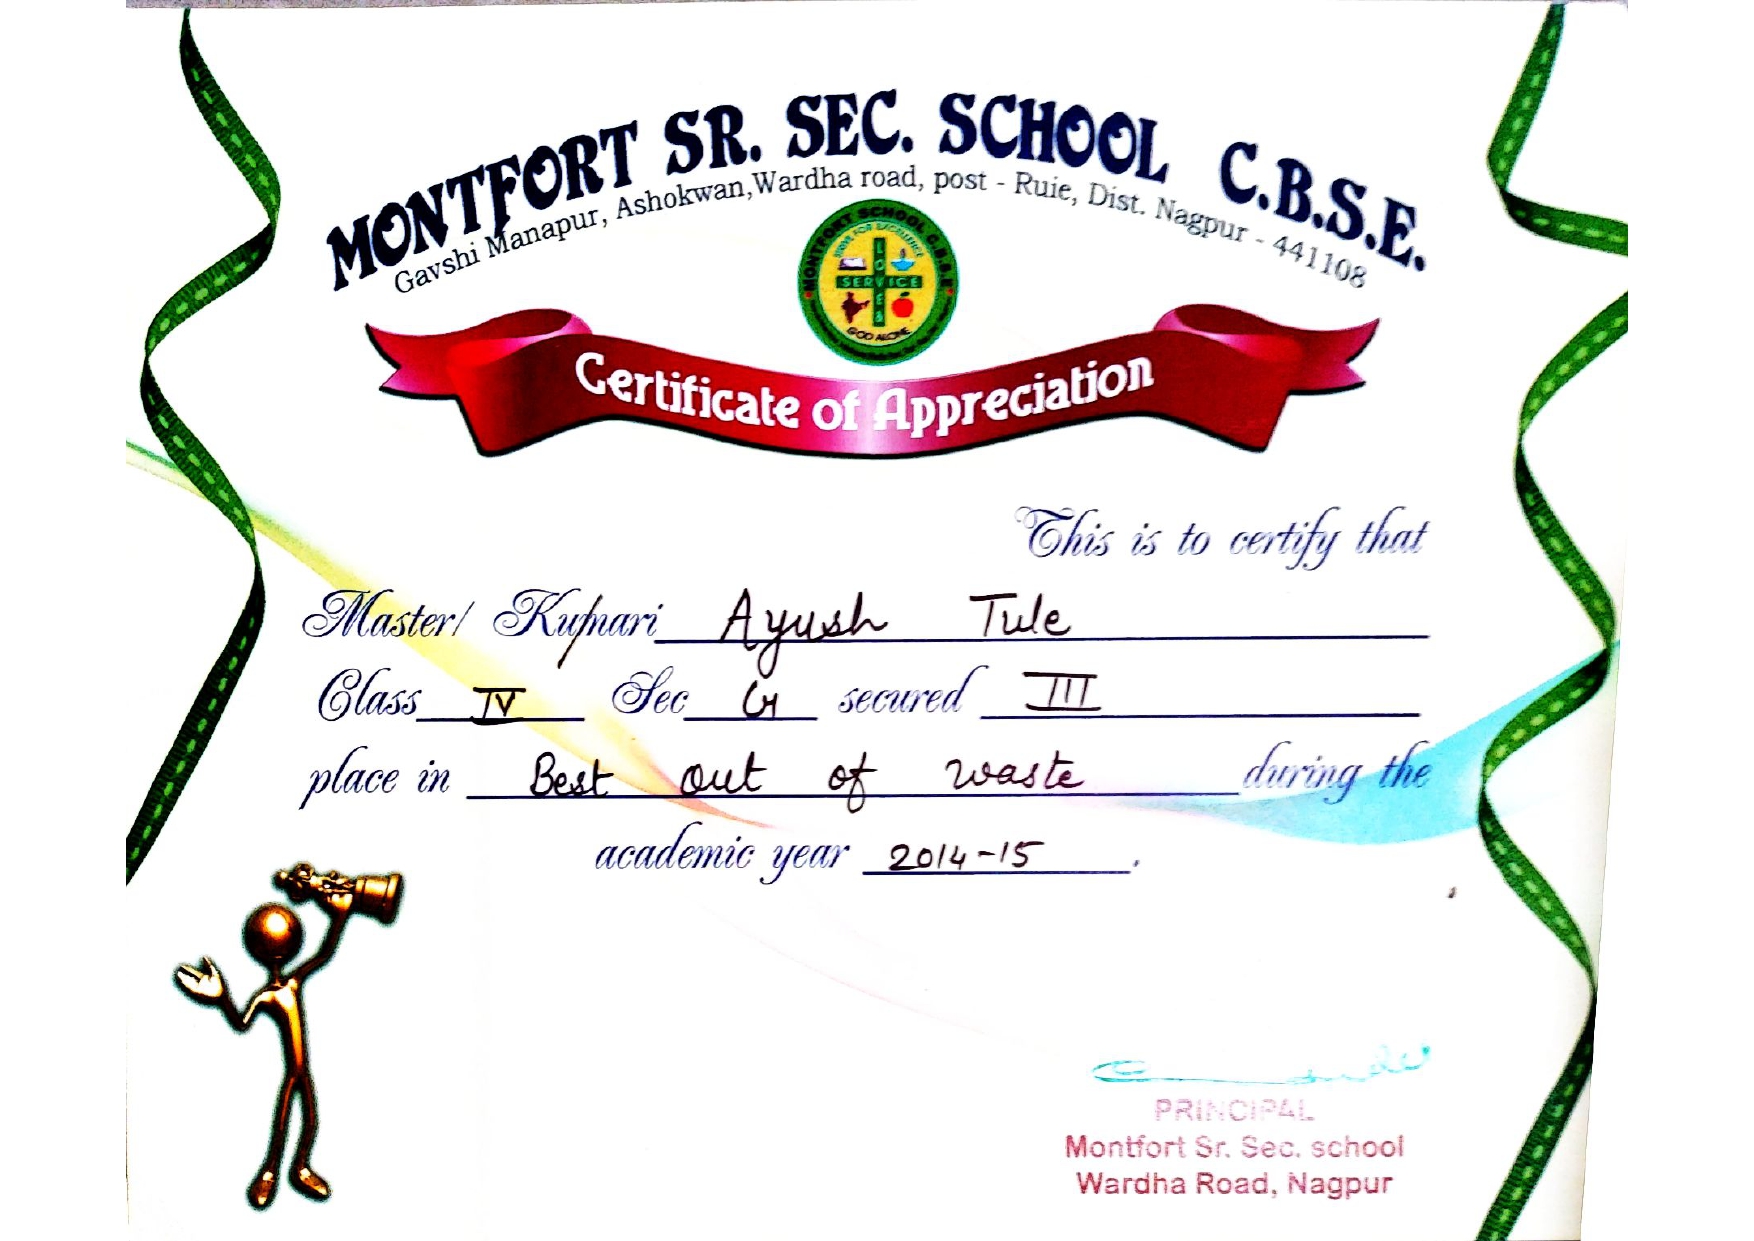 MONTFORT SR. SEC. SCHOOL C.B.S.E.
Gavshi Manapur, Ashokwan, Wardha road, post - Ruie, Dist. Nagpur - 441108
MONTFORT SCHOOL C.B.S.E
STRIVE FOR EXCELLENCE
LOVE
SERVICE
GOD ALONE
Certificate of Appreciation
This is to certify that
Master/ Kumari Ayush Tule
Class IV Sec G secured III
place in Best out of waste during the
academic year 2014-15.
PRINCIPAL
Montfort Sr. Sec. school
Wardha Road, Nagpur